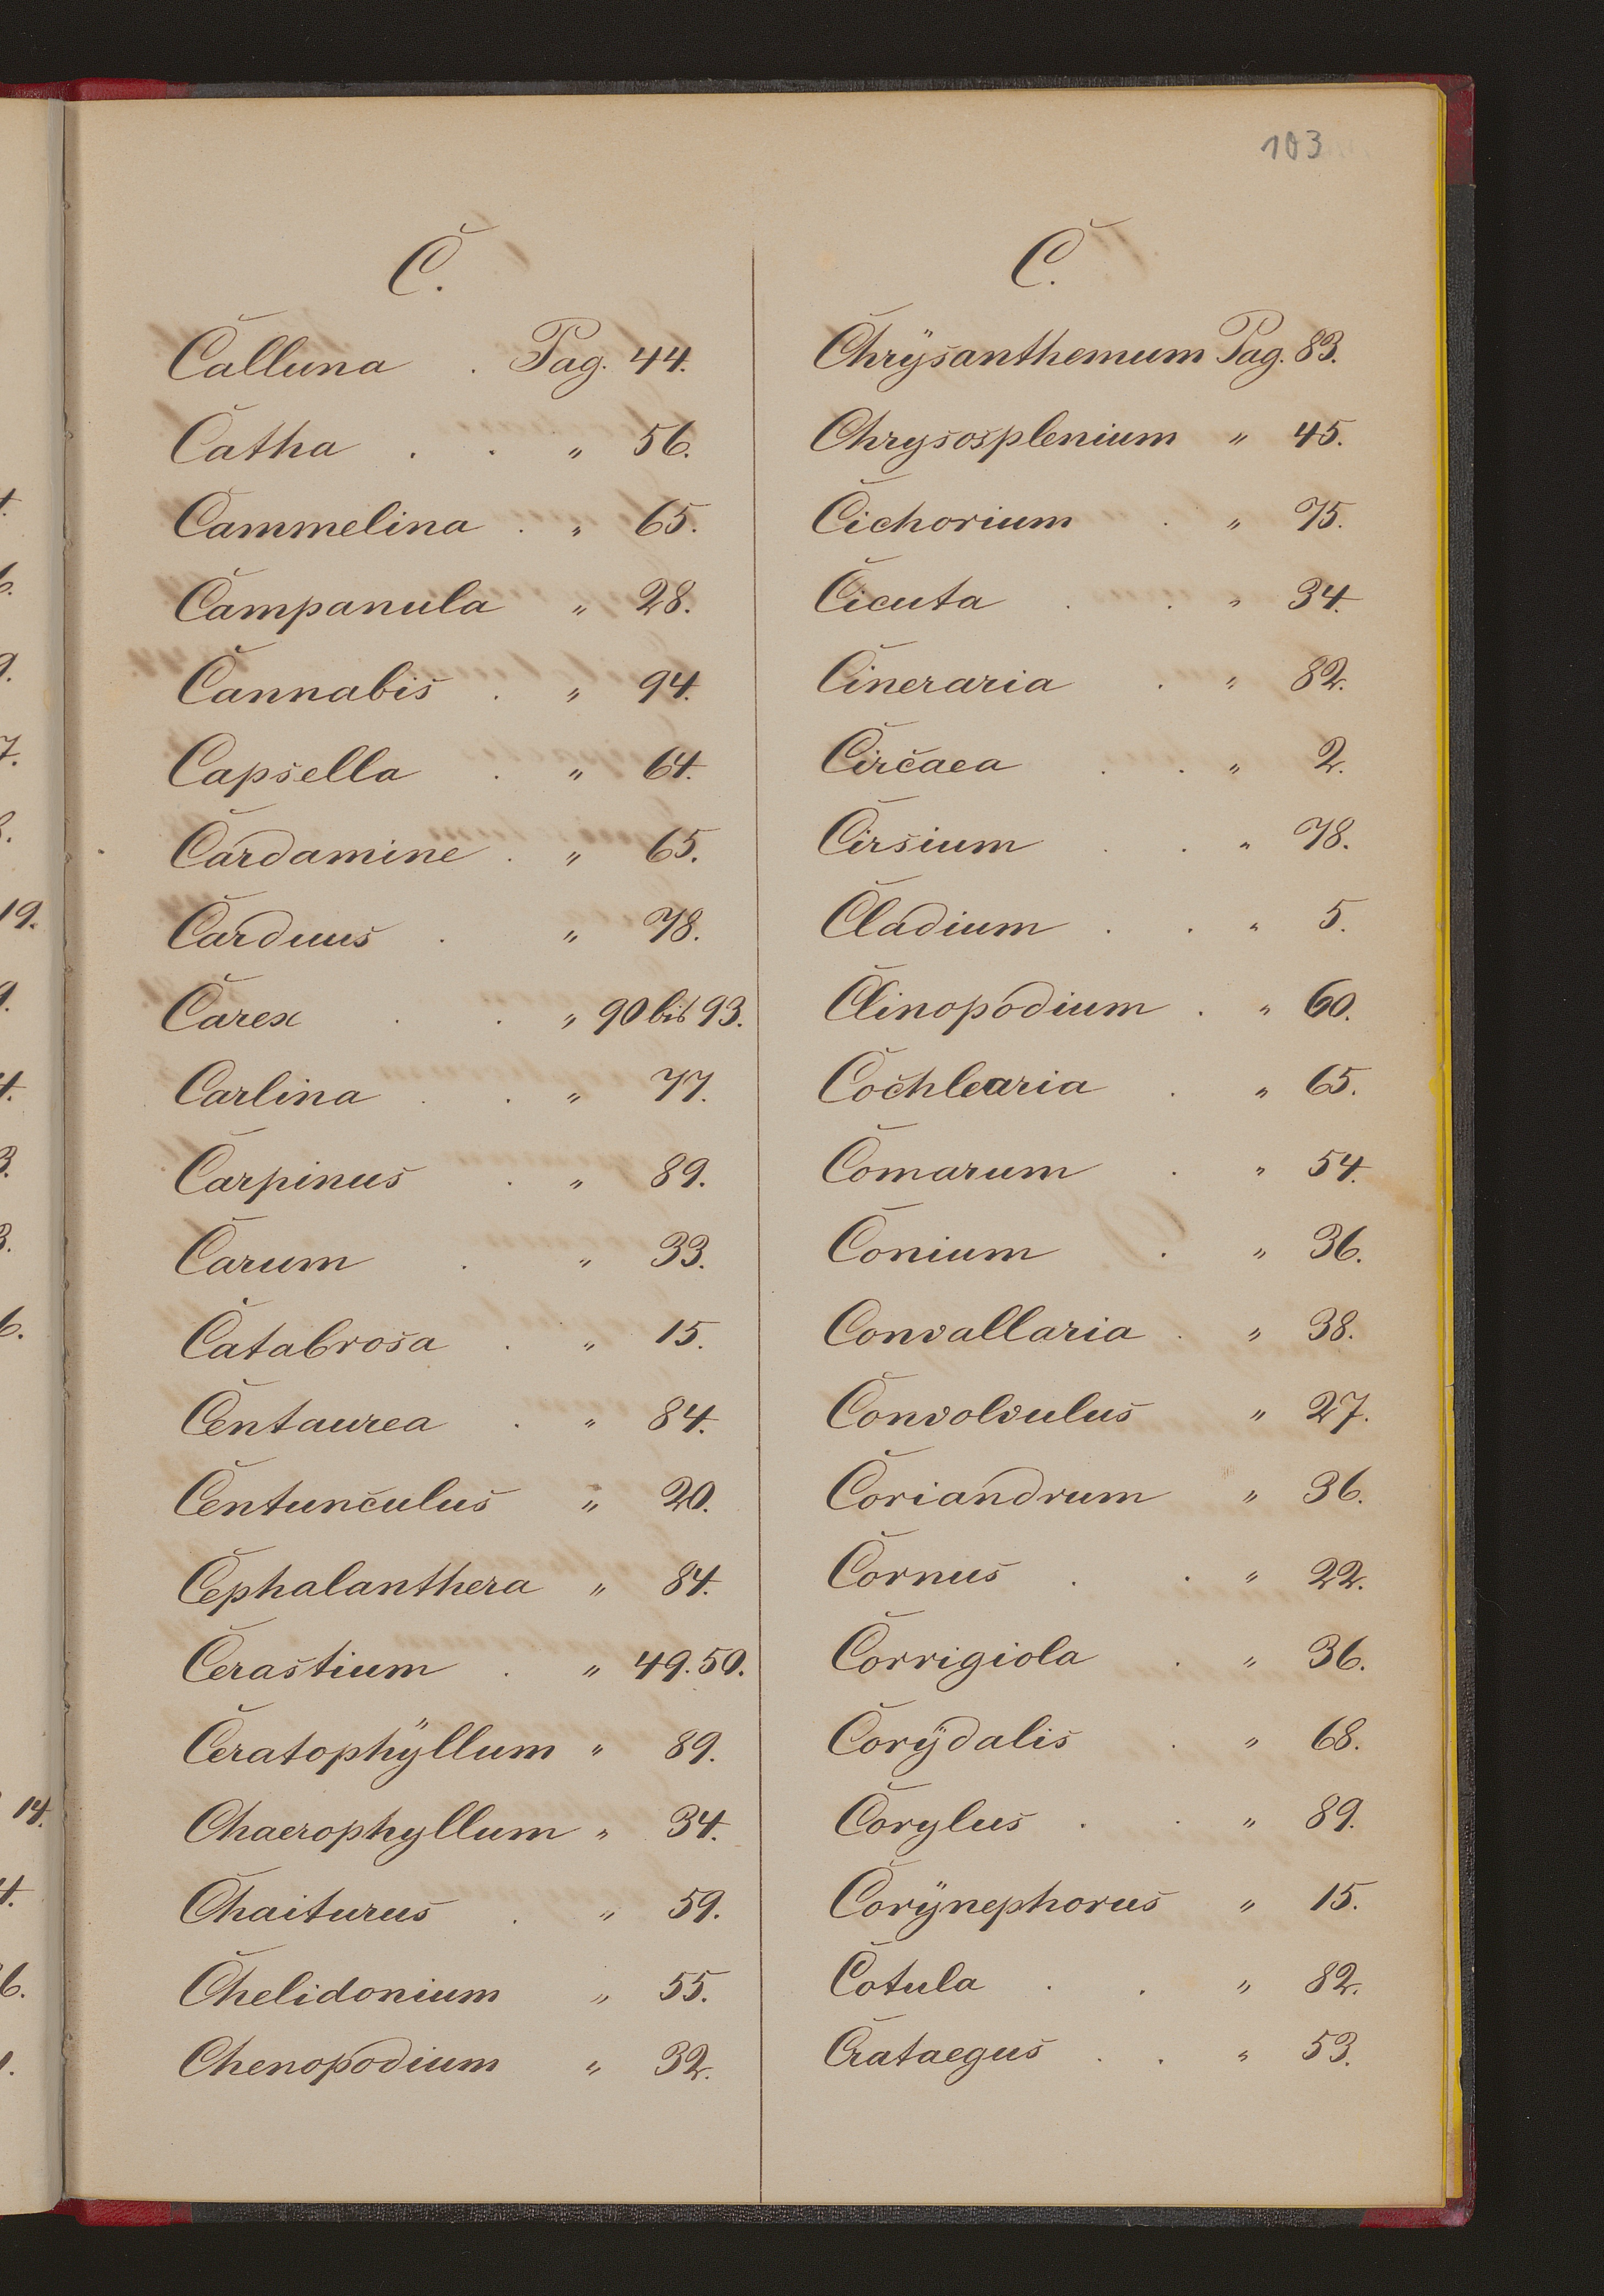 103
C.
Calluna . Pag. 44.
Catha . . " 56.
Cammelina . " 65.
Campanula " 28.
Cannabis . " 94.
Capsella . " 64.
Cardamine . " 65.
Carduus . " 78.
Carex . . " 90 bis 93.
Carlina . . " 77.
Carpinus . " 89.
Carum . " 33.
Catabrosa . " 15.
Centaurea . " 84.
Centunculus " 20.
Cephalanthera " 84.
Cerastium . " 49. 50.
Ceratophÿllum " 89.
Chaerophyllum " 34.
Chaiturus . " 59.
Chelidonium " 55.
Chenopodium " 32.
C.
Chrÿsanthemum Pag. 83.
Chrysosplenium " 45.
Cichorium . " 75.
Cicuta . . " 34.
Cineraria . " 82.
Circaea . . " 2.
Cirsium . . " 78.
Cladium . . " 5.
Clinopodium . " 60.
Cochlearia . " 65.
Comarum . " 54.
Conium . " 36.
Convallaria . " 38.
Convolvulus " 27.
Coriandrum " 36.
Cornus . . " 22.
Corrigiola . " 36.
Corÿdalis . " 68.
Corylus . . " 89.
Corÿnephorus " 15.
Cotula . . " 82.
Crataegus . . " 53.